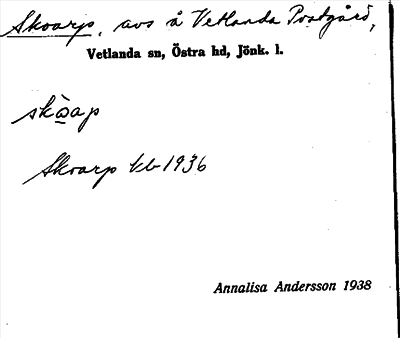 Skoarp, avs å Vetlanda Prostgård,
Vetlanda sn, Östra hd, Jönk. l.
Skoarp kb 1936
Annalisa Andersson 1938